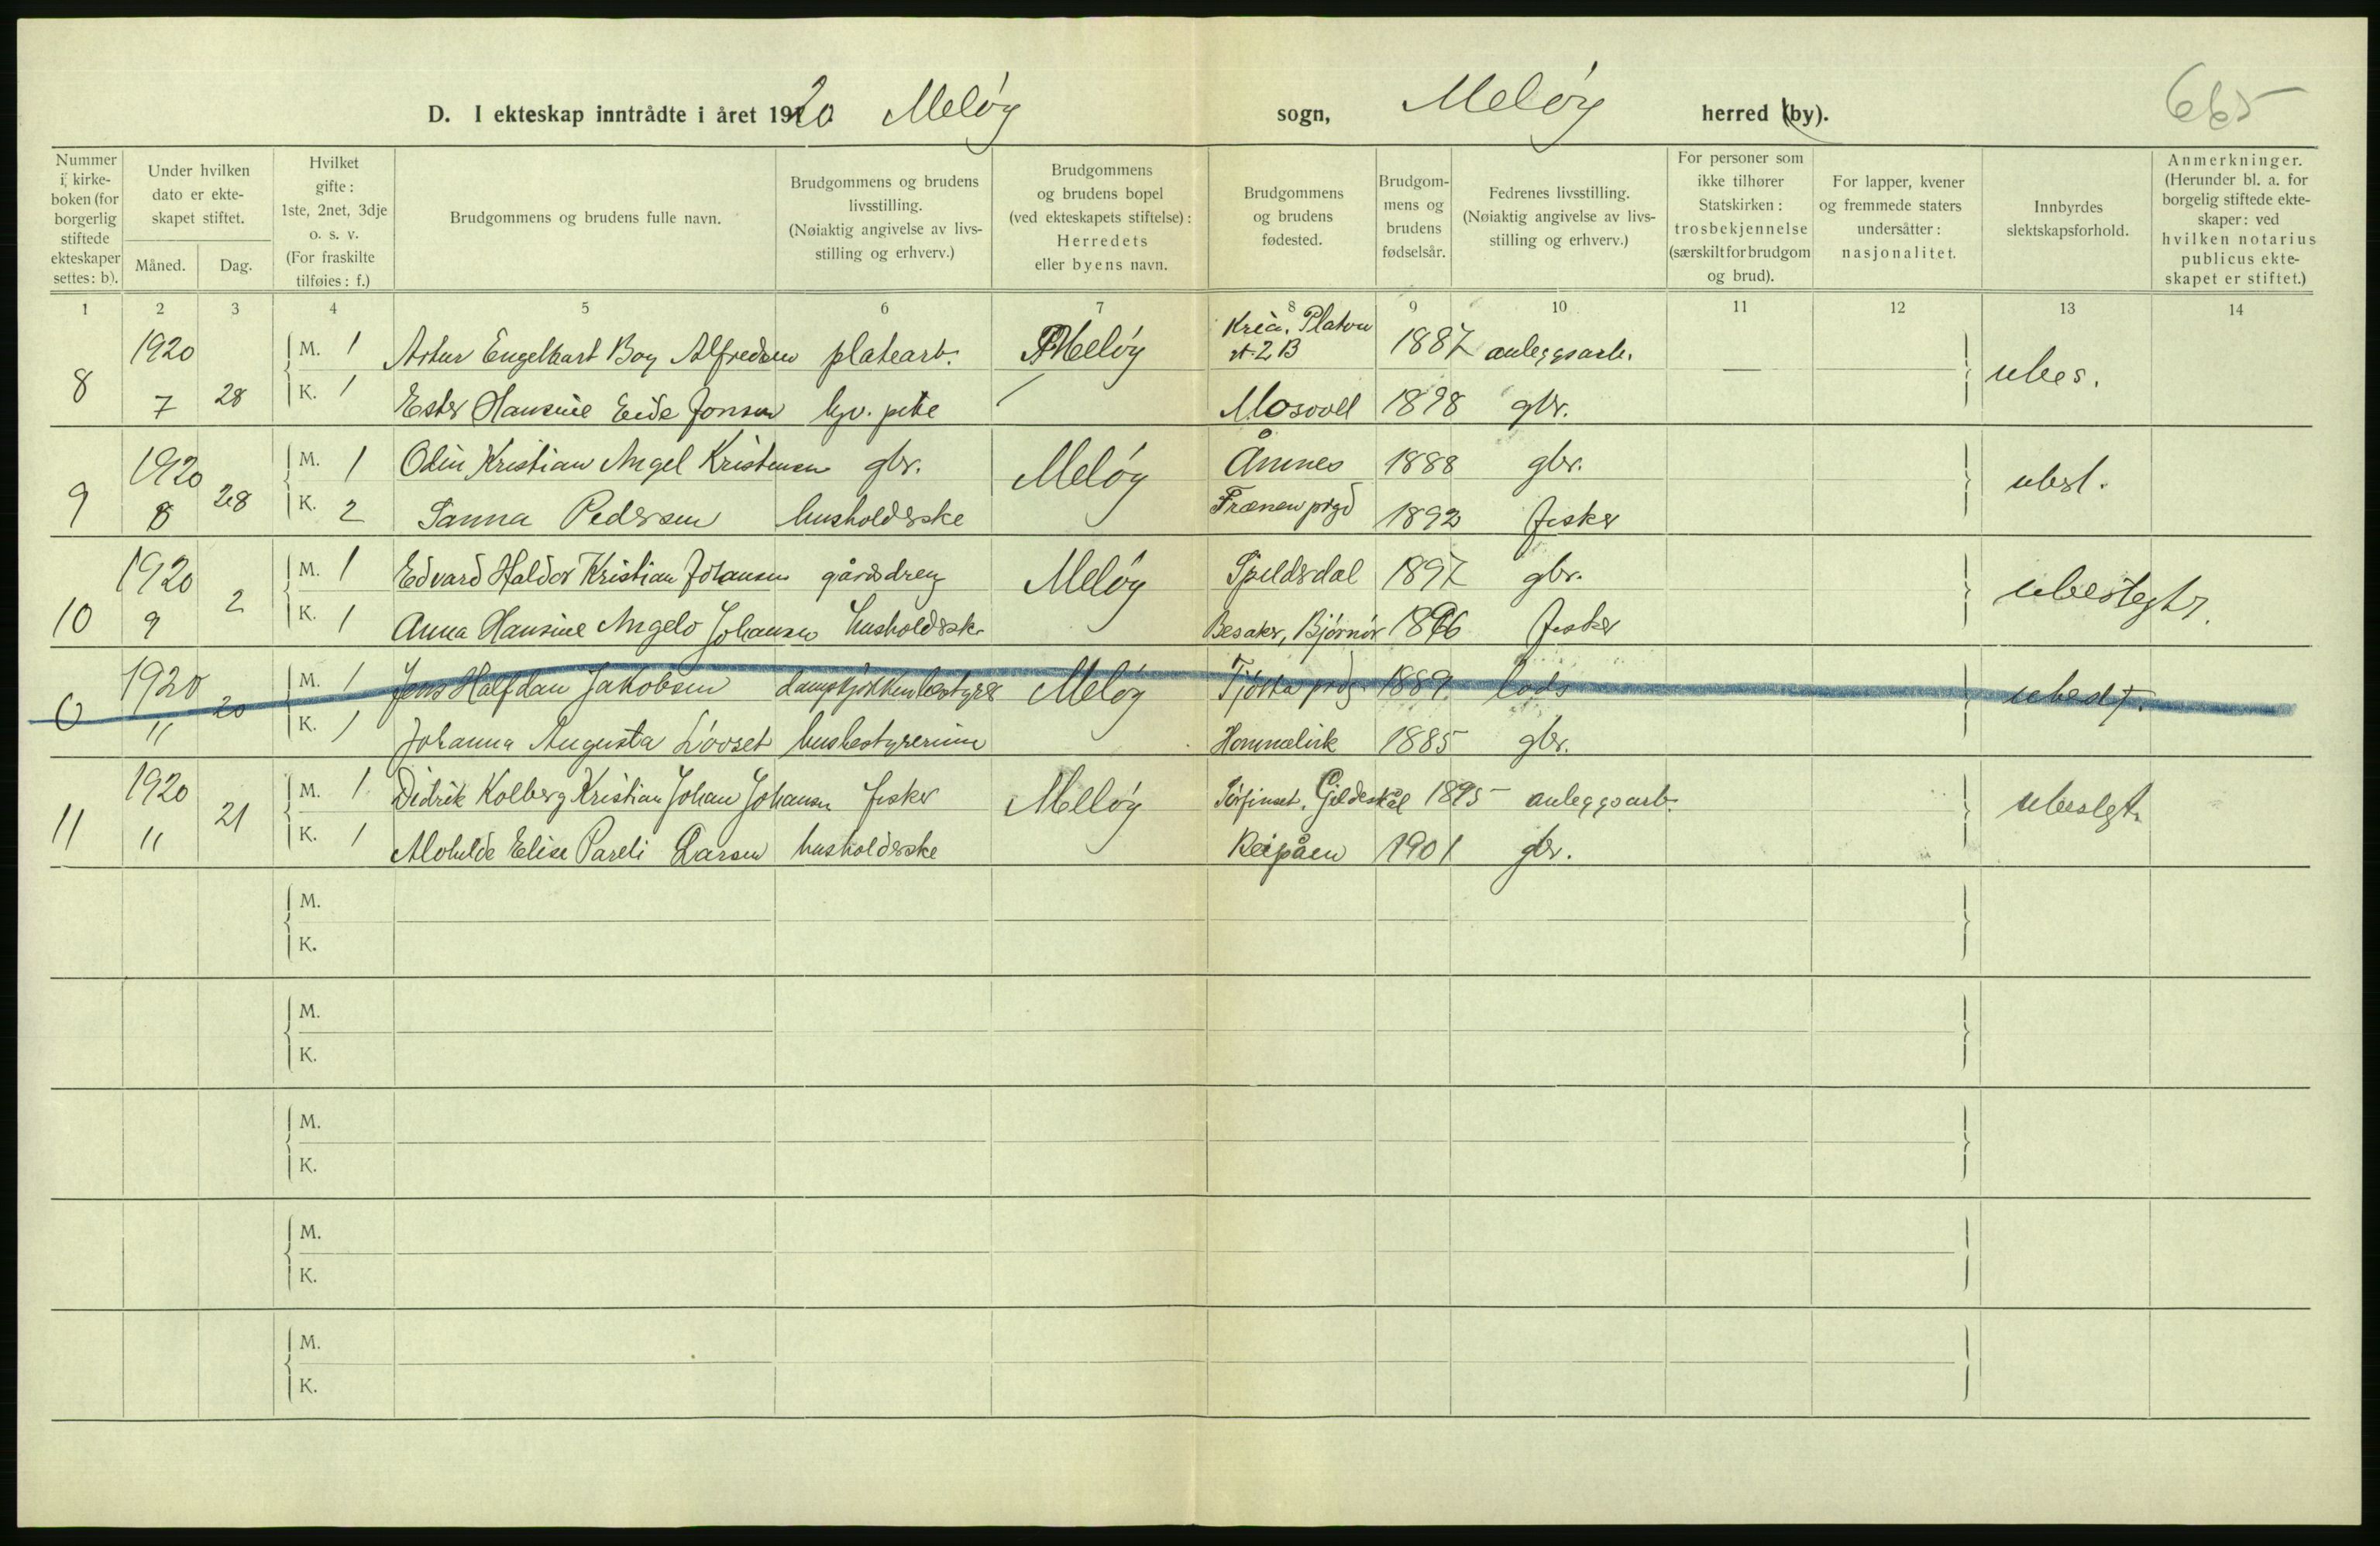 D. I ekteskap inntrådte i året 1920 Meløy sogn, Meløy herred (by). 665
Nummer i kirkeboken (for borgerlig stiftede ekteskaper settes: b).
Under hvilken dato er ekteskapet stiftet.
Måned. Dag.
Hvilket gifte: 1ste, 2net, 3dje o. s. v. (For fraskilte tilføies: f.)
Brudgommens og brudens fulle navn.
Brudgommens og brudens livsstilling. (Nøiaktig angivelse av livsstilling og erhverv.)
Brudgommens og brudens bopel (ved ekteskapets stiftelse): Herredets eller byens navn.
Brudgommens og brudens fødested.
Brudgommens og brudens fødselsår.
Fedrenes livsstilling. (Nøiaktig angivelse av livsstilling og erhverv.)
For personer som ikke tilhører Statskirken: trosbekjennelse (særskilt for brudgom og brud).
For lapper, kvener og fremmede staters undersåtter: nasjonalitet.
Innbyrdes slektskapsforhold.
Anmerkninger. (Herunder bl. a. for borgelig stiftede ekteskaper: ved hvilken notarius publicus ekteskapet er stiftet.)
1 2 3 4 5 6 7 8 9 10 11 12 13 14
8 1920 7 28
M. 1 Artur Engelhart Boy Alfredsen platearb. Meløy Kria. Platou gt. 2 B 1887 anleggsarb. ubes.
K. 1 Ester Hansine Eide Jonsen hv. pike Mosvoll 1898 gbr.
9 1920 8 28
M. 1 Odin Kristian Angel Kristensen gbr. Meløy Åmnes 1888 gbr. ubesl.
K. 2 Sanna Pedersen husholderske Frænen prgd 1892 fisker
10 1920 9 2
M. 1 Edvard Haldor Kristian Johansen gårdsdreng Meløy Spildrdal 1897 gbr. ubeslegt.
K. 1 Anna Hansine Angelo Johansen husholdersk. Besaker, Bjørnør 1896 fisker
0 1920 11 20
M. 1 Jens Halfdan Jakobsen dampkjøkkenbestyrer Meløy Tjøtta prdg. 1889 lods ubesl.
K. 1 Johanna Augusta Løvset husbestyrerinne Hommelvik 1885 gbr.
11 1920 11 21
M. 1 Didrik Kolberg Kristian Johan Johansen fisker Meløy Sørfinset, Gildeskål 1895 anleggsarb. ubeslegt.
K. 1 Alvhilde Elise Pareli Larsen husholderske Reipåen 1901 gbr.
M.
K.
M.
K.
M.
K.
M.
K.
M.
K.